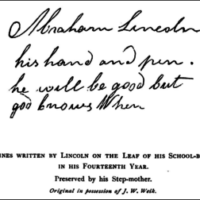 Abraham Lincoln
his hand and pen.
he will be good but
god knows When
INES WRITTEN BY LINCOLN ON THE LEAF OF HIS SCHOOL-B
IN HIS FOURTEENTH YEAR.
Preserved by his Step-mother.
Original in possession of J. W. Weik.